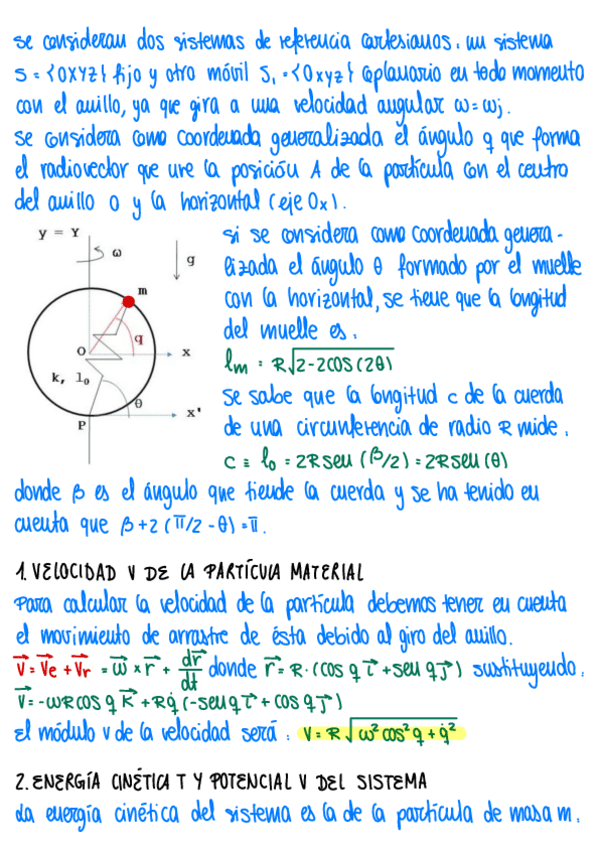 se consideran dos sistemas de referencia cartesianos. un sistema
S = {OXYZ} fijo y otro móvil S₁ = {Oxyz} coplanario en todo momento
con el anillo, ya que gira a una velocidad angular ω = ωj.
se considera como coordenada generalizada el ángulo q que forma
el radiovector que une la posición A de la partícula con el centro
del anillo O y la horizontal (eje Ox).
y = Y
ω
g
m
q
O
x
k, l₀
θ
x'
P
si se considera como coordenada genera-
lizada el ángulo θ formado por el muelle
con la horizontal, se tiene que la longitud
del muelle es:
lm = R√2-2cos(2θ)
se sabe que la longitud c de la cuerda
de una circunferencia de radio R mide:
c ≡ l₀ = 2R sen (β/2) = 2R sen (θ)
donde β es el ángulo que tiende la cuerda y se ha tenido en
cuenta que β + 2 (π/2 - θ) = π.
1. VELOCIDAD V DE LA PARTÍCULA MATERIAL
Para calcular la velocidad de la partícula debemos tener en cuenta
el movimiento de arrastre de ésta debido al giro del anillo.
V⃗ = V⃗e + V⃗r = ω⃗ x r⃗ + dr⃗/dt donde r⃗ = R·(cos q i⃗ + sen q j⃗) sustituyendo:
V⃗ = -ωR cos q k⃗ + Rq̇ (-sen q i⃗ + cos q j⃗)
El módulo v de la velocidad será: v = R √ω² cos² q + q̇²
2. ENERGÍA CINÉTICA T Y POTENCIAL V DEL SISTEMA
La energía cinética del sistema es la de la partícula de masa m: